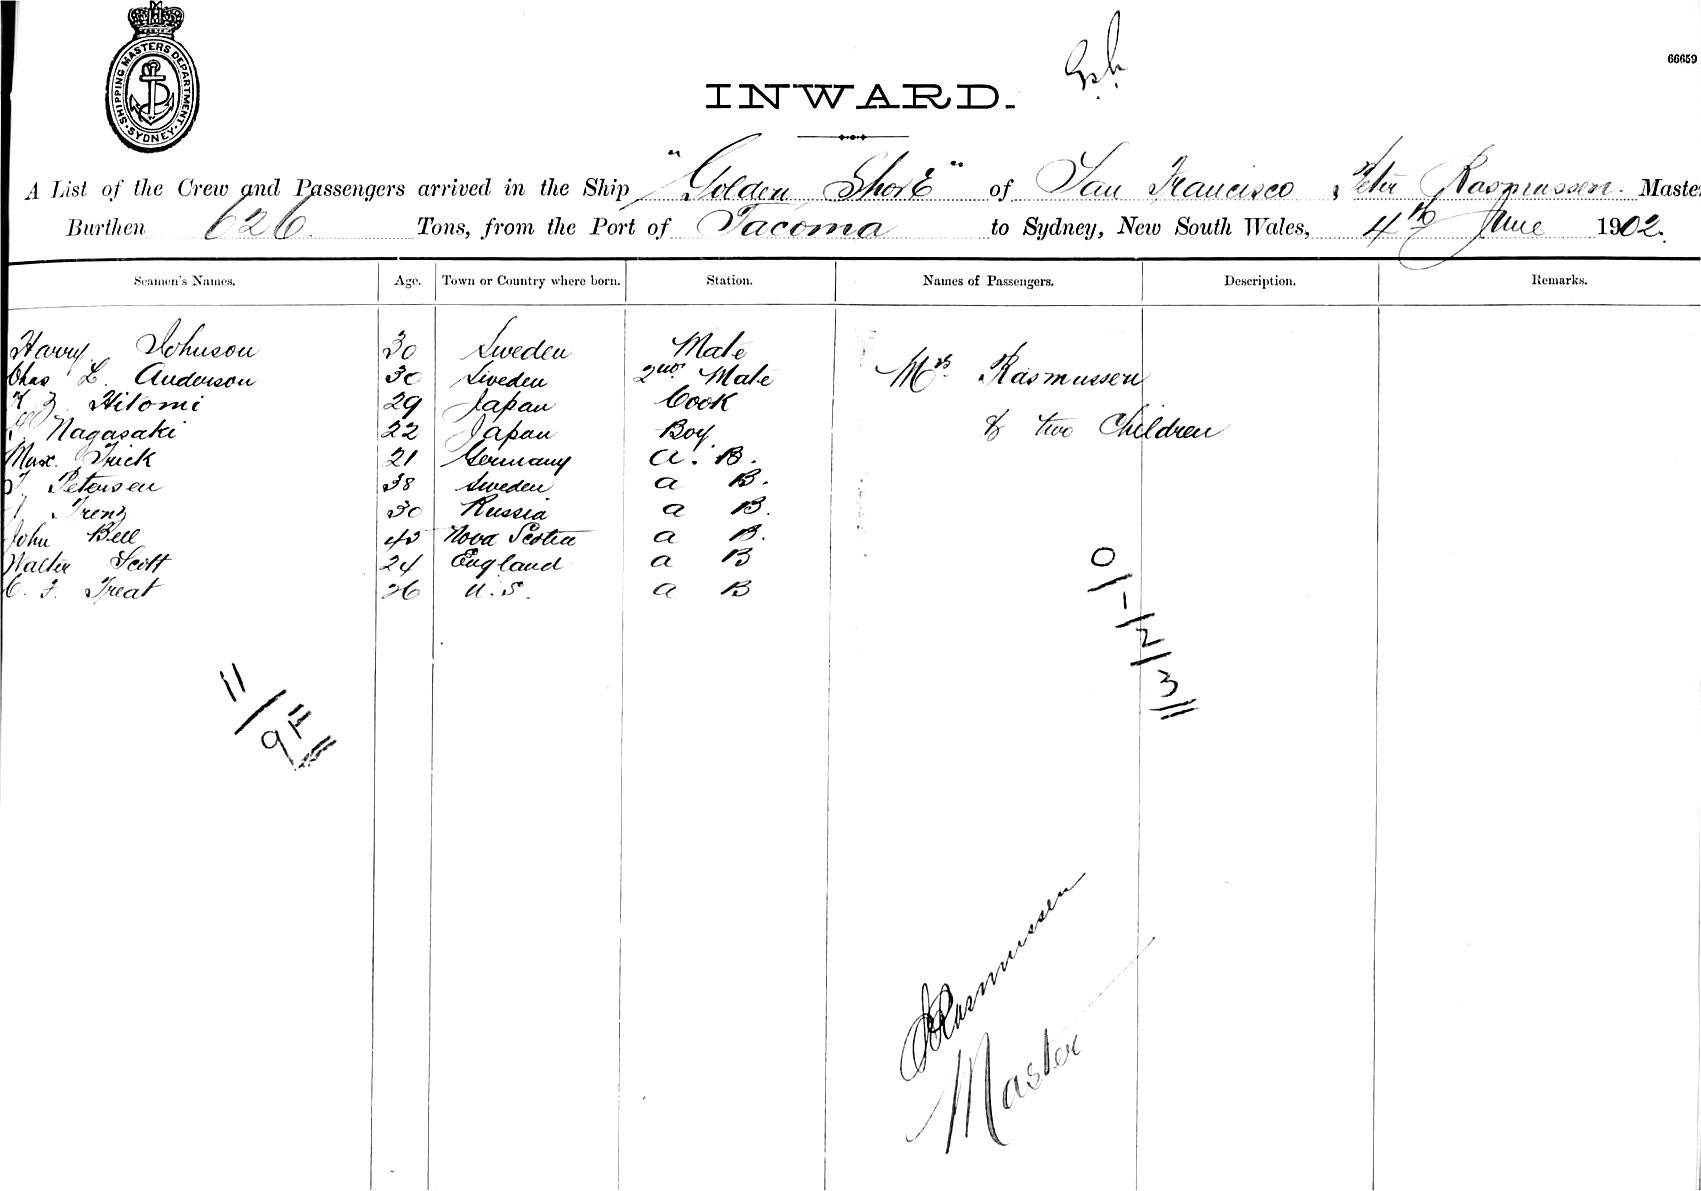 SHIPPING MASTERS DEPARTMENT. SYDNEY.
66659
INWARD.
A List of the Crew and Passengers arrived in the Ship "Golden Shore" of San Francisco, Peter Rasmussen. Master
Burthen 626. Tons, from the Port of Tacoma to Sydney, New South Wales, 4th June 1902.
Seamen's Names. Age. Town or Country where born. Station. Names of Passengers. Description. Remarks.
Harry Johnson 30 Sweden Mate
Chas L. Anderson 30 Sweden 2nd Mate Mrs. Rasmussen
Hitomi 29 Japan Cook
Nagasaki 22 Japan Boy & two Children
Max. Frick 21 Germany A. B.
Petersen 38 Sweden a B.
30 Russia a B.
John Bell 45 Nova Scotia a B.
Walter Scott 24 England a B
C. F. Treat 26 U.S. a B
Rasmussen
Master